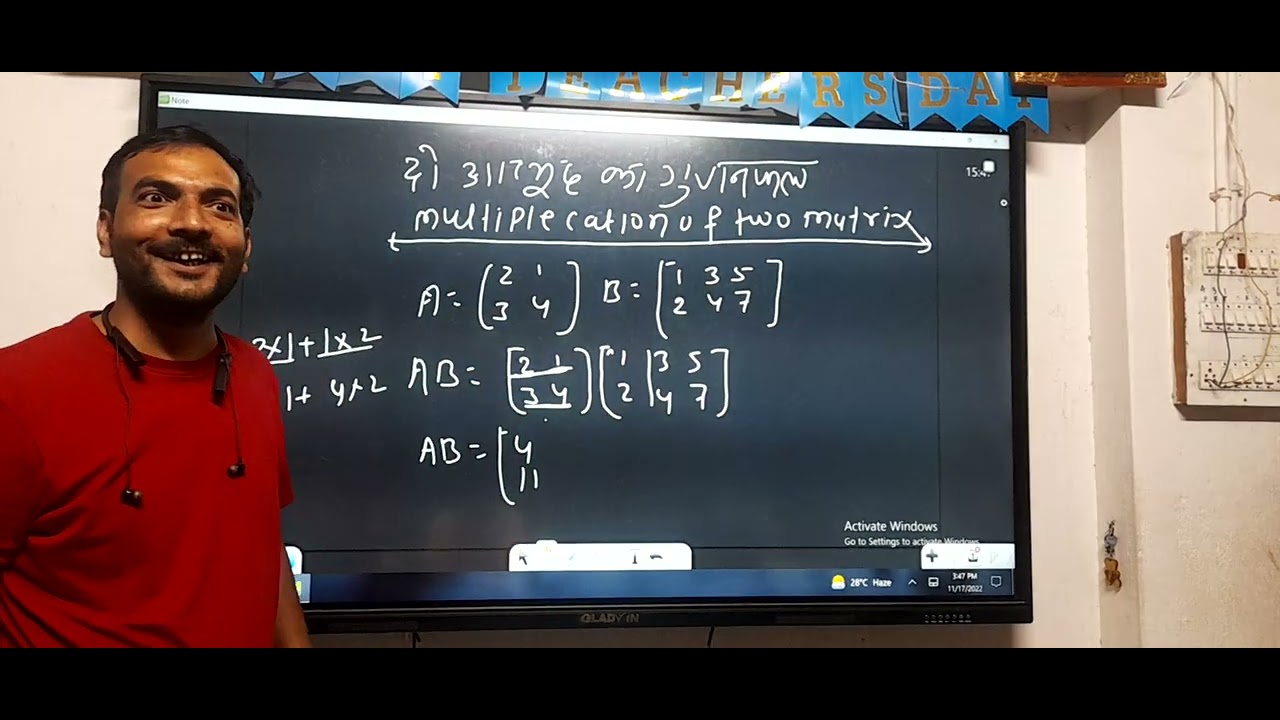 TEACHERS DAY
Note
15:4
दो आव्यूह का गुणनफल
multiplecation of two matrix
A = [2 1 B = [1 3 5
3 4] 2 4 7]
2x1 + 1x2
1 + 4x2
AB = [2 1 [1 3 5
3 4] 2 4 7]
AB = [4
11
Activate Windows
Go to Settings to activate Windows.
28°C Haze
3:47 PM
11/17/2022
GLADWIN